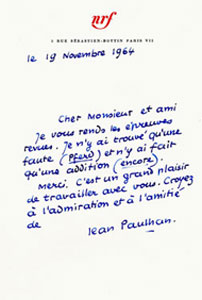 nrf
5 RUE SÉBASTIEN-BOTTIN PARIS VII
le 19 Novembre 1964
Cher Monsieur et ami
Je vous rends les épreuves
revues. Je n'y ai trouvé qu'une
faute (Pferd) et n'y ai fait
qu'une addition (encore).
Merci. C'est un grand plaisir
de travailler avec vous. Croyez
à l'admiration et à l'amitié
de
Jean Paulhan.